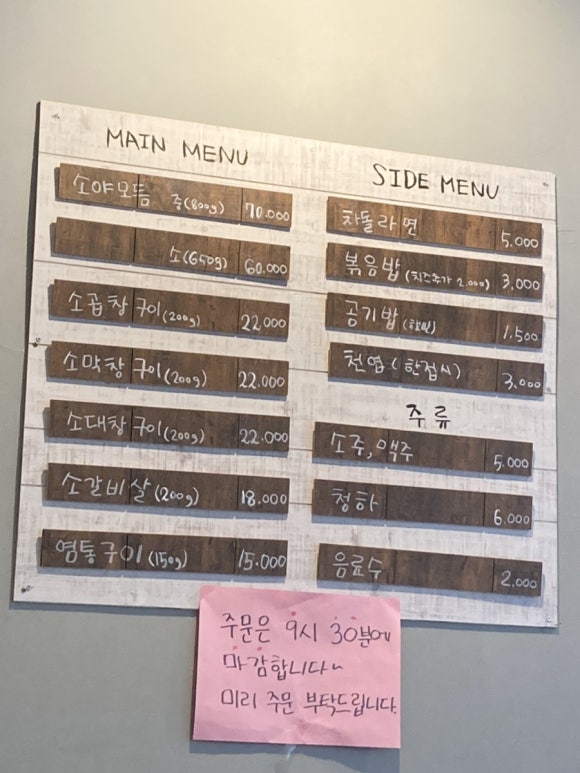 MAIN MENU
소야모듬 중(800g) 70.000
소(650g) 60.000
소곱창구이(200g) 22.000
소막창구이(200g) 22.000
소대창구이(200g) 22.000
소갈비살(200g) 18.000
염통구이(150g) 15.000
SIDE MENU
차돌라면 5.000
볶음밥(치즈추가 2.000) 3.000
공기밥 1.500
천엽(한접시) 3.000
주류
소주, 맥주 5.000
청하 6.000
음료수 2.000
주문은 9시 30분에
마감합니다~
미리 주문 부탁드립니다.